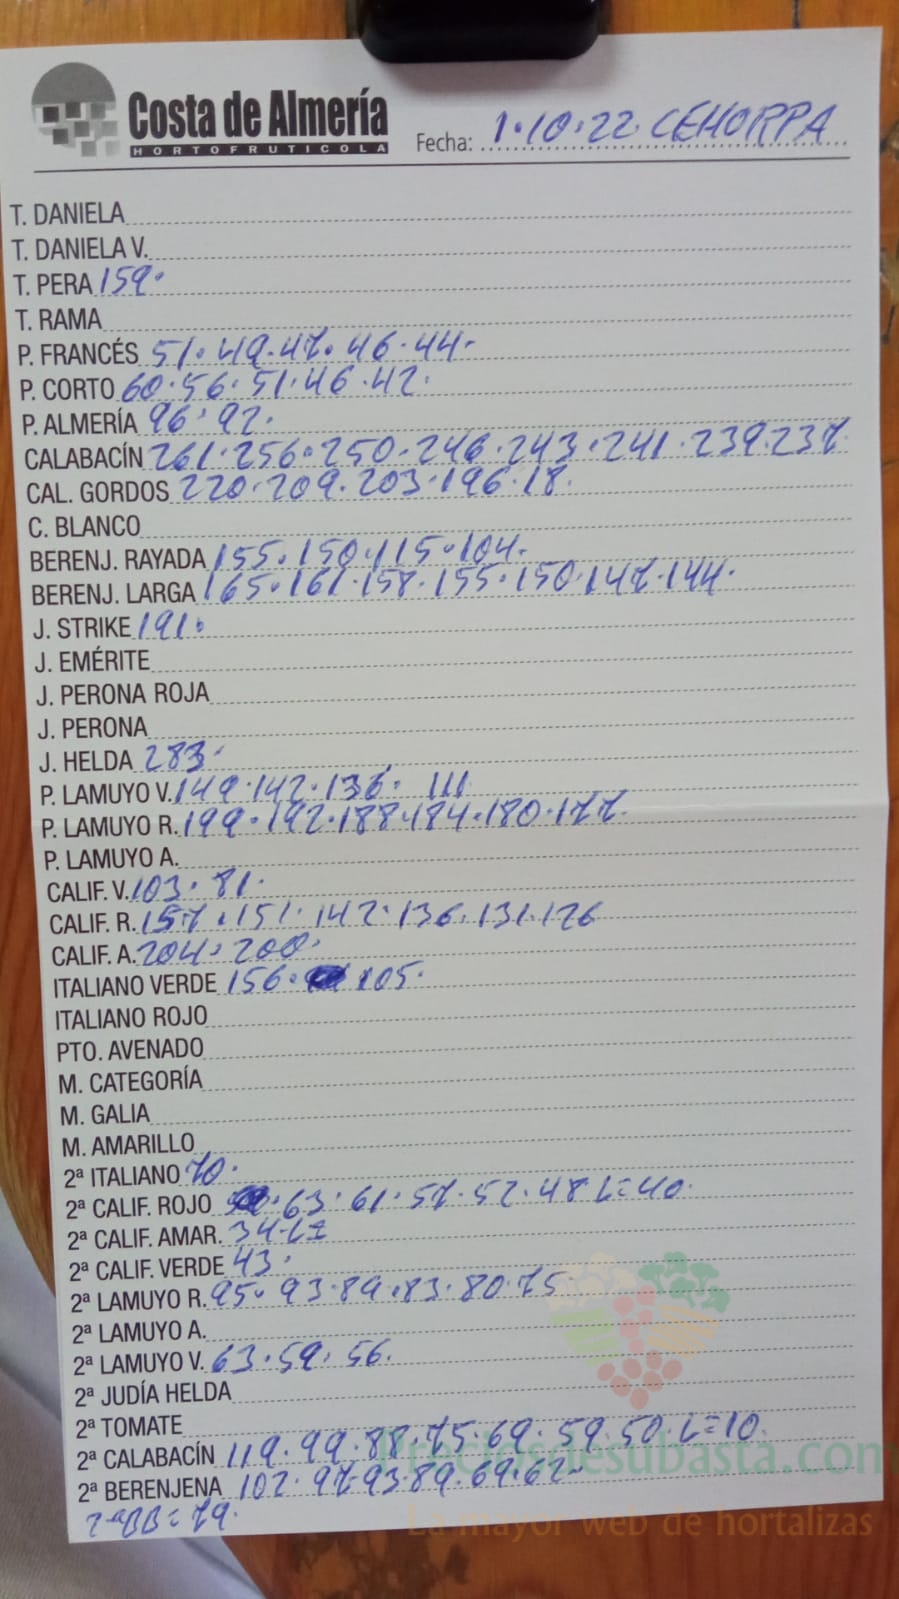 Costa de Almería
HORTOFRUTICOLA
Fecha: 1·10·22 CEHORPA
T. DANIELA
T. DANIELA V.
T. PERA 159·
T. RAMA
P. FRANCÉS 51·49·47·46·44·
P. CORTO 60·56·51·46·42·
P. ALMERÍA 96·92·
CALABACÍN 261·256·250·246·243·241·239·237
CAL. GORDOS 220·209·203·196·18·
C. BLANCO
BERENJ. RAYADA 155·150·115·104·
BERENJ. LARGA 165·161·158·155·150·147·144·
J. STRIKE 191·
J. EMÉRITE
J. PERONA ROJA
J. PERONA
J. HELDA 283·
P. LAMUYO V. 149·142·136· 111
P. LAMUYO R. 199·192·188·184·180·177·
P. LAMUYO A.
CALIF. V. 103·81·
CALIF. R. 157·151·142·136·131·126
CALIF. A. 204·200·
ITALIANO VERDE 156· 105·
ITALIANO ROJO
PTO. AVENADO
M. CATEGORÍA
M. GALIA
M. AMARILLO
2ª ITALIANO 70·
2ª CALIF. ROJO ·63·61·57·52·48 L=40·
2ª CALIF. AMAR. 34-
2ª CALIF. VERDE 43·
2ª LAMUYO R. 95·93·89·83·80·75
2ª LAMUYO A.
2ª LAMUYO V. 63·59·56·
2ª JUDÍA HELDA
2ª TOMATE
2ª CALABACÍN 119·99·88·75·69·59·50·L=10·
2ª BERENJENA 102·97·93·89·69·62-
2ªBB=79·
Preciosdesubasta.com
La mayor web de hortalizas